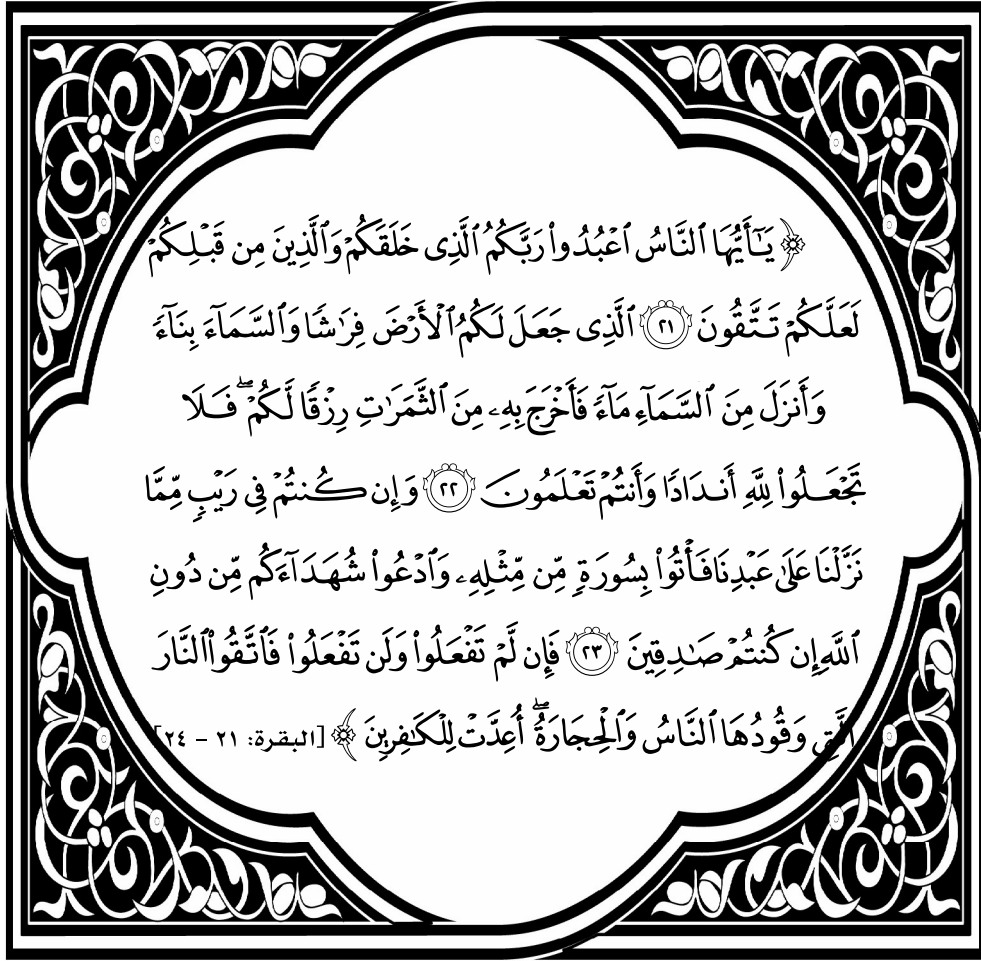 ﴿يَـٰٓأَيُّهَا ٱلنَّاسُ ٱعْبُدُوا۟ رَبَّكُمُ ٱلَّذِى خَلَقَكُمْ وَٱلَّذِينَ مِن قَبْلِكُمْ
لَعَلَّكُمْ تَتَّقُونَ ٢١ ٱلَّذِى جَعَلَ لَكُمُ ٱلْأَرْضَ فِرَٰشًا وَٱلسَّمَآءَ بِنَآءً
وَأَنزَلَ مِنَ ٱلسَّمَآءِ مَآءً فَأَخْرَجَ بِهِۦ مِنَ ٱلثَّمَرَٰتِ رِزْقًا لَّكُمْ ۖ فَلَا
تَجْعَلُوا۟ لِلَّهِ أَندَادًا وَأَنتُمْ تَعْلَمُونَ ٢٢ وَإِن كُنتُمْ فِى رَيْبٍ مِّمَّا
نَزَّلْنَا عَلَىٰ عَبْدِنَا فَأْتُوا۟ بِسُورَةٍ مِّن مِّثْلِهِۦ وَٱدْعُوا۟ شُهَدَآءَكُم مِّن دُونِ
ٱللَّهِ إِن كُنتُمْ صَـٰدِقِينَ ٢٣ فَإِن لَّمْ تَفْعَلُوا۟ وَلَن تَفْعَلُوا۟ فَٱتَّقُوا۟ ٱلنَّارَ
ٱلَّتِى وَقُودُهَا ٱلنَّاسُ وَٱلْحِجَارَةُ ۖ أُعِدَّتْ لِلْكَـٰفِرِينَ﴾ [البقرة: ٢١ - ٢٤]